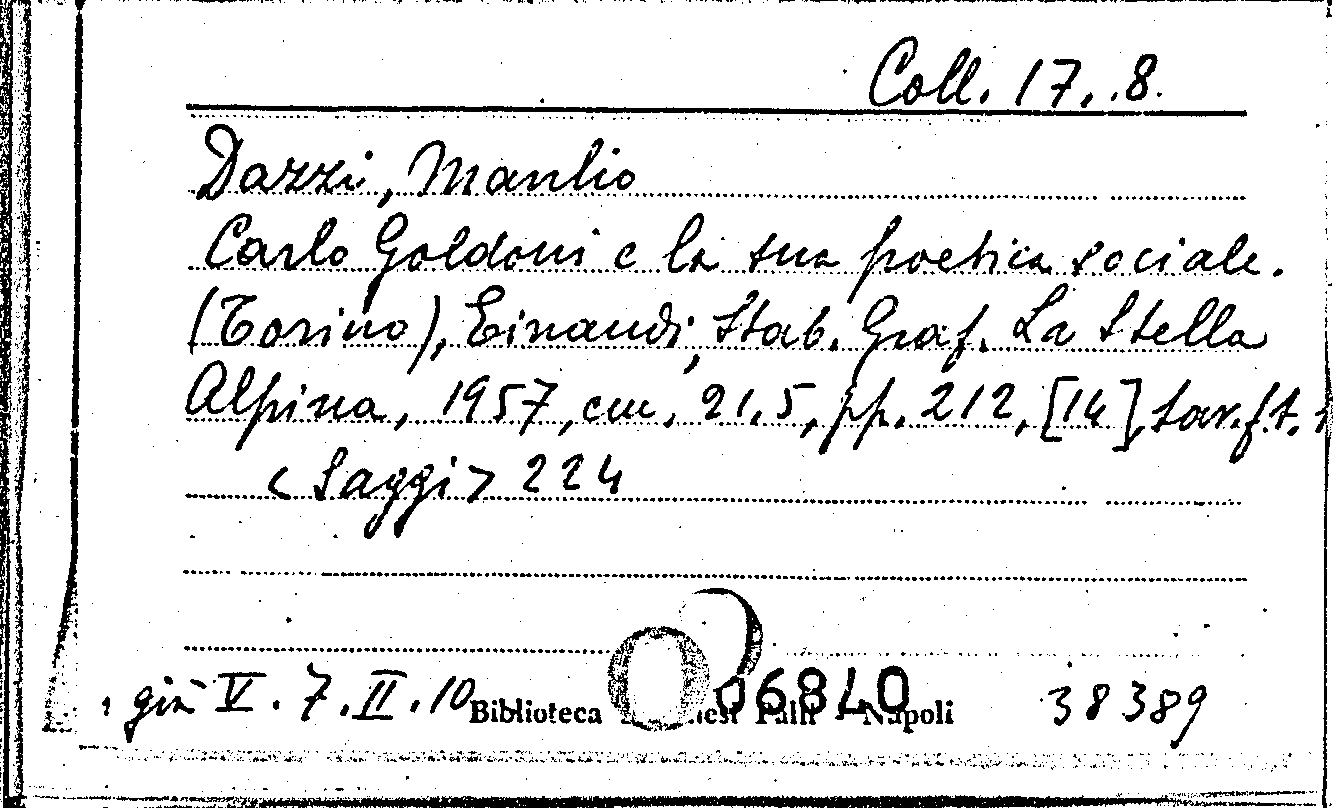 Coll. 17. .8.
Dazzi, Manlio
Carlo Goldoni e la sua poetica sociale.
(Torino), Einaudi, Stab. Graf. La Stella
Alpina, 1957, cm. 21.5, pp. 212, [14] tav. f.t.
<Saggi> 224
già V. 7. II. 10
Biblioteca Palli - Napoli
06840
38389